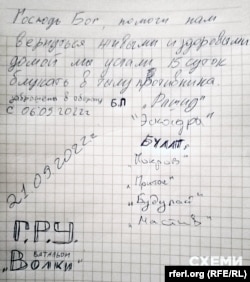 Господь Бог, помоги нам
вернуться живыми и здоровыми
домой мы устали 15 суток
блукать в тылу противника.
заброшены в оборону Б.П.
с 06.09.2022г
"Рашид"
"Эскадра"
БУЛАТ,
"Покров"
"Прапор"
"Будулай"
"Мастив"
21.09.2022г
Г.Р.У.
БАТАЛЬОН
"Волки"
СХЕМИ
rferl.org RFE/RL)